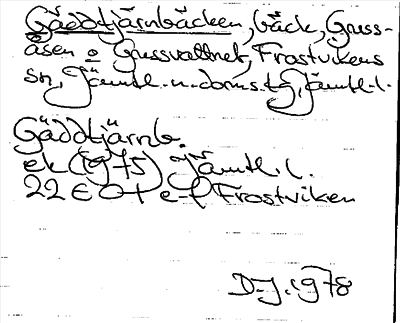 Gäddtjärnbäcken, bäck, Gruss-
åsen o Grussvattnet, Frostvikens
sn, Jämtl. n. doms. tg, Jämtl. l.
Gäddtjärnb.
ek (1975) Jämtl. l.
22 E 0 f e-f Frostviken
D.J. 1978